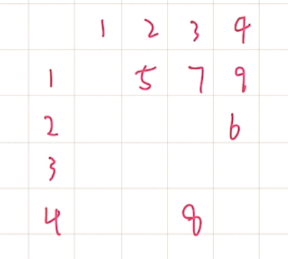 1 2 3 4
1 5 7 9
2 6
3
4 8